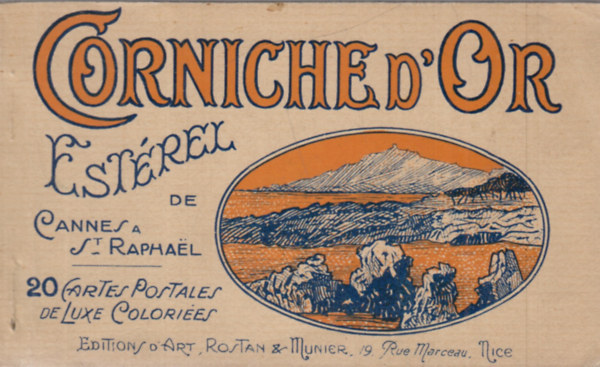 CORNICHE D'OR
ESTÉREL
DE
CANNES A
ST RAPHAËL
20 CARTES POSTALES
DE LUXE COLORIÉES
EDITIONS D'ART, ROSTAN & MUNIER, 19, Rue Marceau, NICE